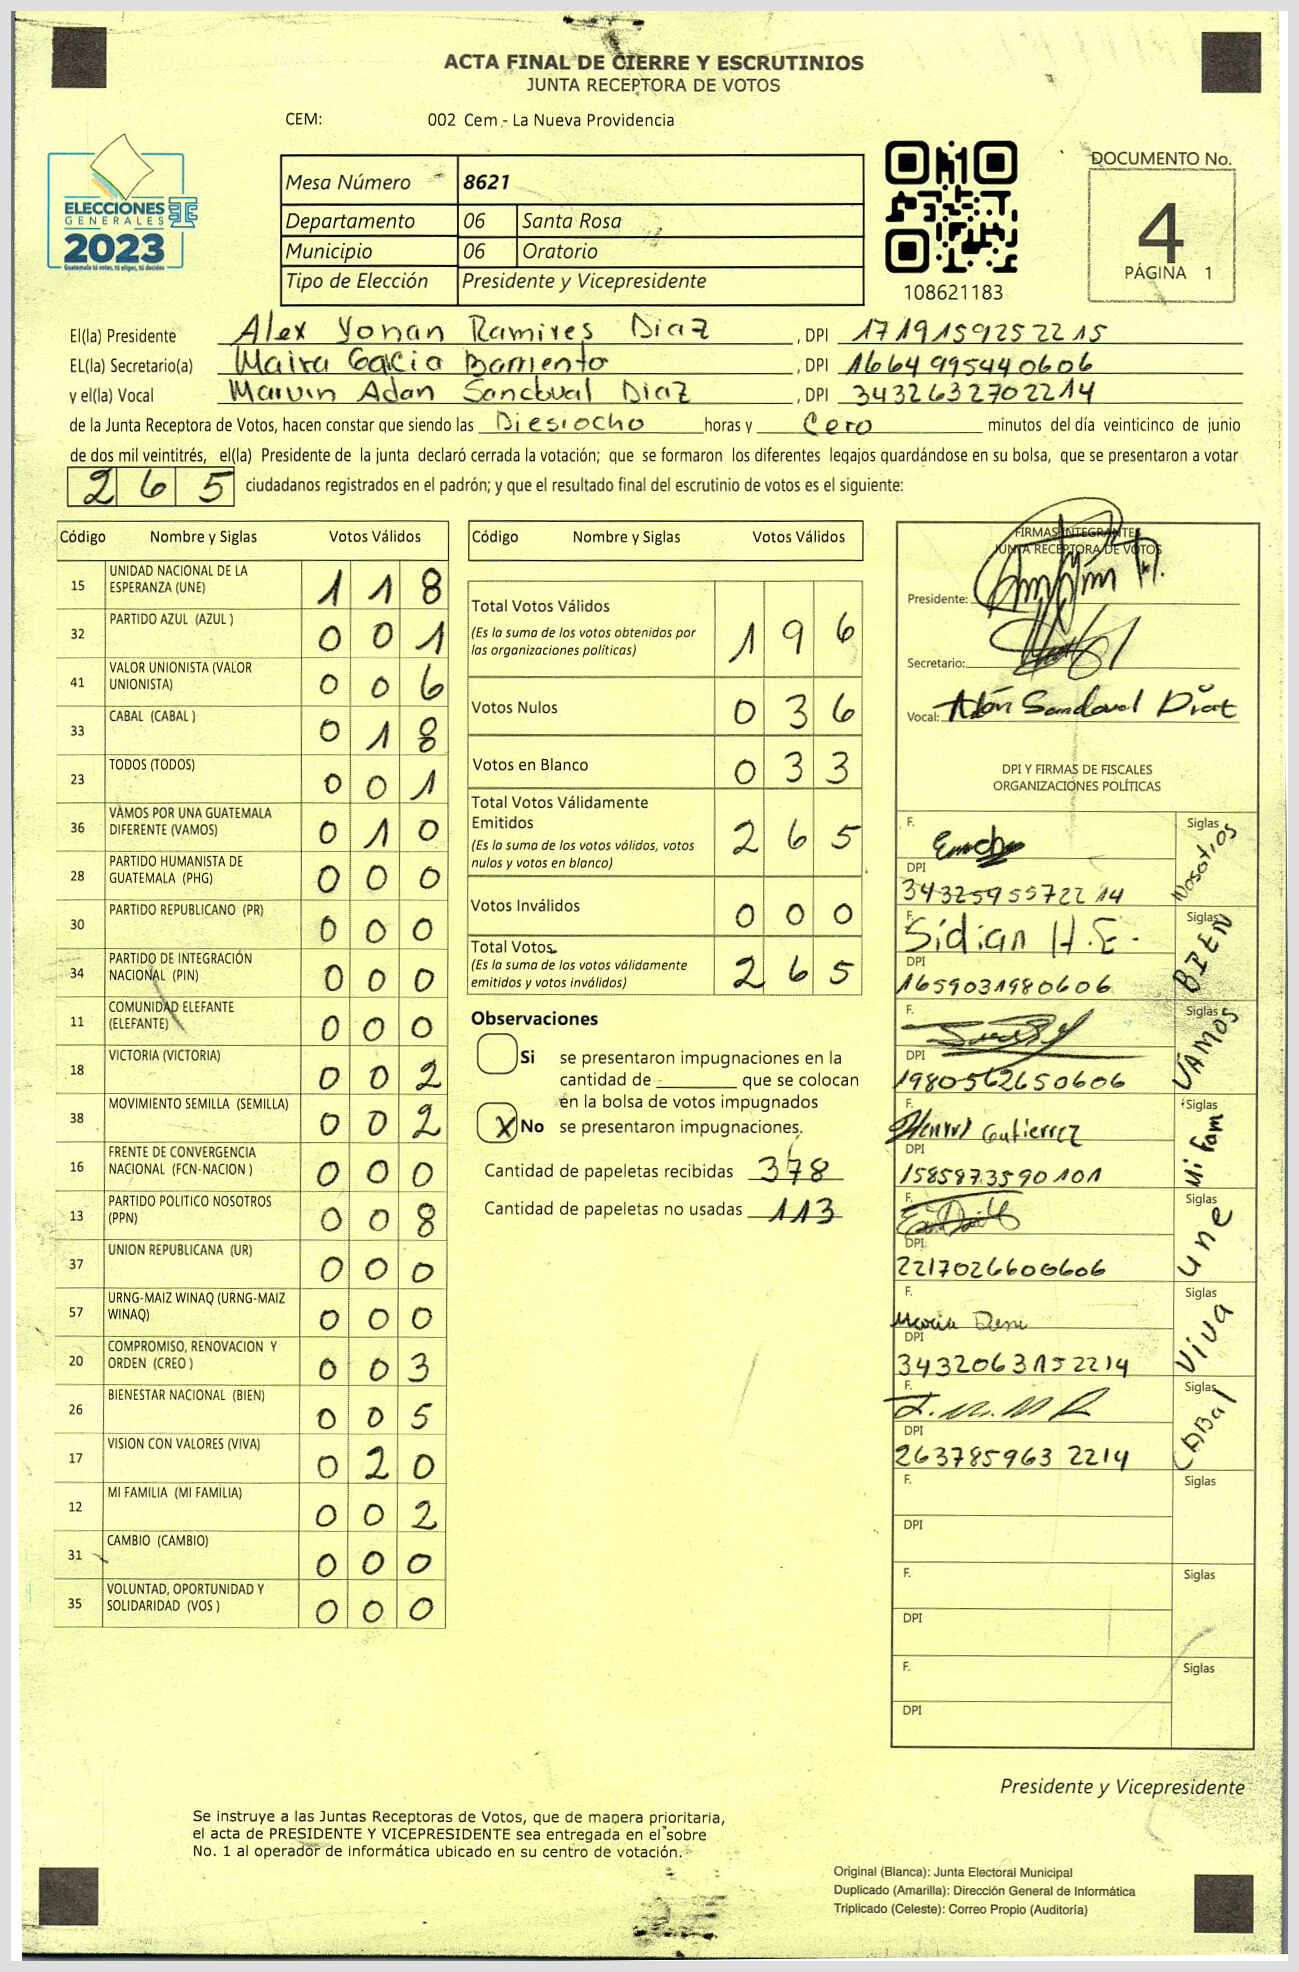 ACTA FINAL DE CIERRE Y ESCRUTINIOS
JUNTA RECEPTORA DE VOTOS
CEM: 002 Cem - La Nueva Providencia
ELECCIONES
GENERALES
2023
Guatemala tú votas, tú eliges, tú decides
Mesa Número 8621
Departamento 06 Santa Rosa
Municipio 06 Oratorio
Tipo de Elección Presidente y Vicepresidente
108621183
DOCUMENTO No.
4
PÁGINA 1
El(la) Presidente Alex Yonan Ramires Diaz , DPI 1719159252215
EL(la) Secretario(a) Maira Gacia Barriento , DPI 1664995440606
y el(la) Vocal Marvin Adan Sandoval Diaz , DPI 3432632702214
de la Junta Receptora de Votos, hacen constar que siendo las Diesiocho horas y Cero minutos del día veinticinco de junio
de dos mil veintitrés, el(la) Presidente de la junta declaró cerrada la votación; que se formaron los diferentes legajos guardándose en su bolsa, que se presentaron a votar
265 ciudadanos registrados en el padrón; y que el resultado final del escrutinio de votos es el siguiente:
Código Nombre y Siglas Votos Válidos
15 UNIDAD NACIONAL DE LA ESPERANZA (UNE) 118
32 PARTIDO AZUL (AZUL ) 001
41 VALOR UNIONISTA (VALOR UNIONISTA) 006
33 CABAL (CABAL ) 018
23 TODOS (TODOS) 001
36 VAMOS POR UNA GUATEMALA DIFERENTE (VAMOS) 010
28 PARTIDO HUMANISTA DE GUATEMALA (PHG) 000
30 PARTIDO REPUBLICANO (PR) 000
34 PARTIDO DE INTEGRACIÓN NACIONAL (PIN) 000
11 COMUNIDAD ELEFANTE (ELEFANTE) 000
18 VICTORIA (VICTORIA) 002
38 MOVIMIENTO SEMILLA (SEMILLA) 002
16 FRENTE DE CONVERGENCIA NACIONAL (FCN-NACION ) 000
13 PARTIDO POLITICO NOSOTROS (PPN) 008
37 UNION REPUBLICANA (UR) 000
57 URNG-MAIZ WINAQ (URNG-MAIZ WINAQ) 000
20 COMPROMISO, RENOVACION Y ORDEN (CREO ) 003
26 BIENESTAR NACIONAL (BIEN) 005
17 VISION CON VALORES (VIVA) 020
12 MI FAMILIA (MI FAMILIA) 002
31 CAMBIO (CAMBIO) 000
35 VOLUNTAD, OPORTUNIDAD Y SOLIDARIDAD (VOS ) 000
Código Nombre y Siglas Votos Válidos
Total Votos Válidos 196
(Es la suma de los votos obtenidos por
las organizaciones políticas)
Votos Nulos 036
Votos en Blanco 033
Total Votos Válidamente
Emitidos 265
(Es la suma de los votos válidos, votos
nulos y votos en blanco)
Votos Inválidos 000
Total Votos 265
(Es la suma de los votos válidamente
emitidos y votos inválidos)
Observaciones
Si se presentaron impugnaciones en la
cantidad de ________ que se colocan
en la bolsa de votos impugnados
X No se presentaron impugnaciones.
Cantidad de papeletas recibidas 378
Cantidad de papeletas no usadas 113
FIRMAS INTEGRANTES
JUNTA RECEPTORA DE VOTOS
Presidente:
Secretario:
Vocal: Adán Sandoval Diaz
DPI Y FIRMAS DE FISCALES
ORGANIZACIONES POLÍTICAS
F. Siglas Nosotros
DPI
3432595572214
F. Sidian H.E. Siglas BIEN
DPI
1659031980606
F. Siglas VAMOS
DPI
1980562650606
F. Henrri Gutierrez Siglas Mi Fam
DPI
1585873590101
F. Siglas Une
DPI
2217026600606
F. Siglas Viva
DPI
3432063152214
F. Siglas CABal
DPI
263785963 2214
F. Siglas
DPI
F. Siglas
DPI
F. Siglas
DPI
Presidente y Vicepresidente
Se instruye a las Juntas Receptoras de Votos, que de manera prioritaria,
el acta de PRESIDENTE Y VICEPRESIDENTE sea entregada en el sobre
No. 1 al operador de informática ubicado en su centro de votación.
Original (Blanca): Junta Electoral Municipal
Duplicado (Amarilla): Dirección General de Informática
Triplicado (Celeste): Correo Propio (Auditoría)